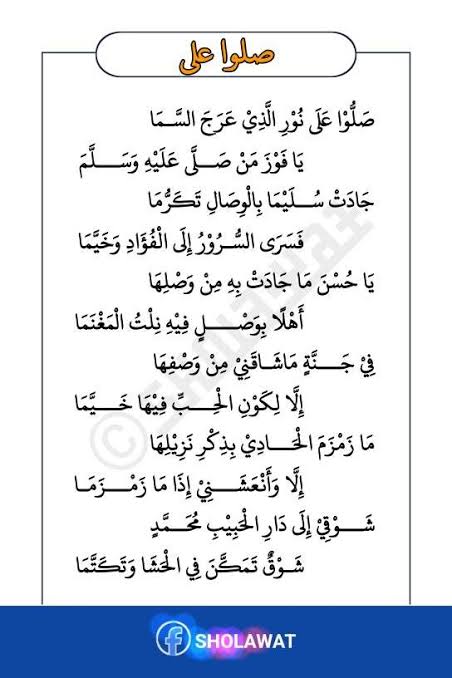 صلوا على
صَلُّوْا عَلَى نُوْرِ الَّذِيْ عَرَجَ السَّـمَا
يَا فَوْزَ مَنْ صَـلَّى عَلَيْهِ وَسَـــلَّمَ
جَادَتْ سُـــلَيْمَا بِالْوِصَالِ تَكَرُّمَا
فَسَرَى السُّـرُوْرُ إِلَى الْفُؤَادِ وَخَيَّمَا
يَا حُسْنَ مَا جَادَتْ بِهِ مِنْ وَصْلِهَا
أَهْلًا بِوَصْـــلٍ فِيْهِ نِلْتُ الْمَغْنَمَا
فِيْ جَـــنَّةٍ مَاشَـاقَنِيْ مِنْ وَصْفِهَا
إِلَّا لِكَوْنِ الْحِـبِّ فِيْهَا خَـــيَّمَا
مَا زَمْزَمَ الْحَـــادِيْ بِذِكْرِ نَزِيْلِهَا
إِلَّا وَأَنْعَشَـــنِيْ إِذَا مَا زَمْـــزَمَـا
شَـــوْقِيْ إِلَى دَارِ الْحَبِيْبِ مُحَـــمَّدٍ
شَـــوْقٌ تَمَكَّنَ فِي الْحَشَا وَتَكَتَّمَا
© SHOLAWAT
SHOLAWAT